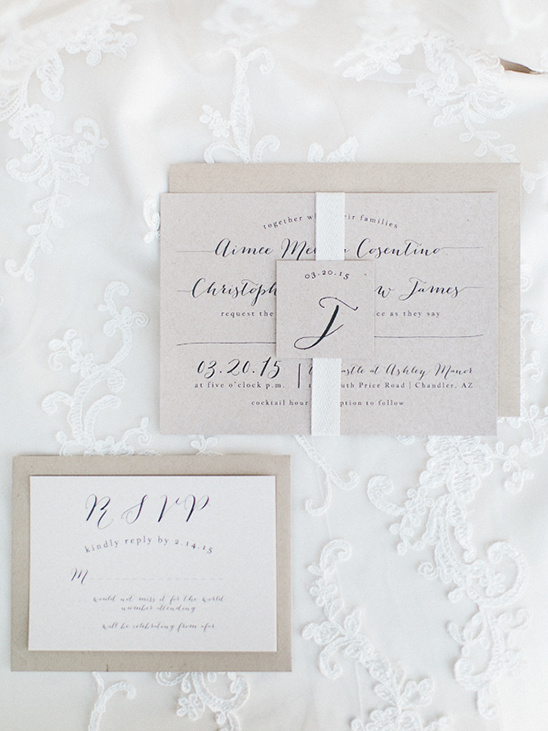 together their families
Aimee Cosentino
Christoph James
request the as they say
03.20.15
J
03.20.15 at Ashley Manor
at five o'clock p.m. Price Road | Chandler, AZ
cocktail hour to follow
RSVP
kindly reply by 2.14.15
M
would not miss it for the world
number attending
will be celebrating from afar